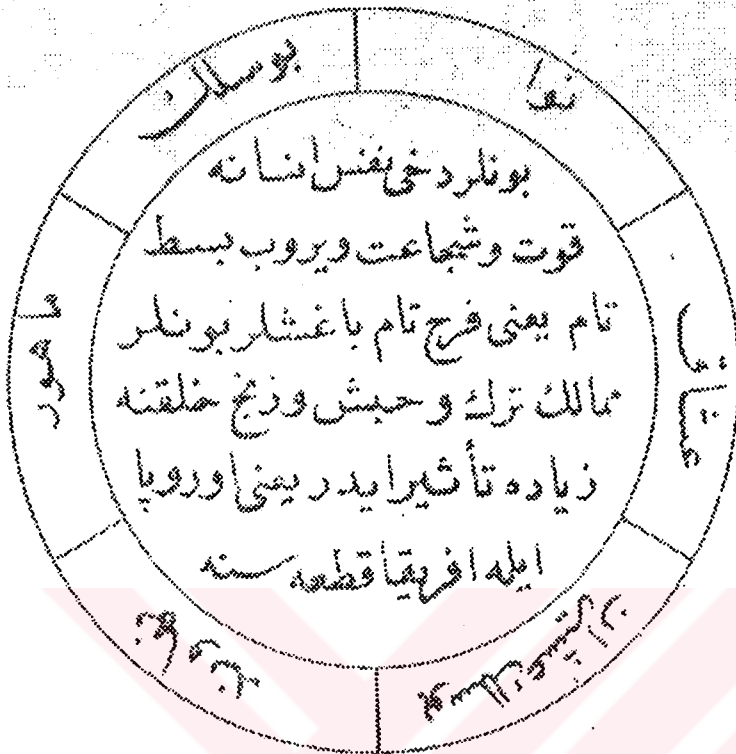 نوا
بوسلك
ماهور
نهاوند
بوسلك عشيران
عشاق
بونلر دخی نفس انسانه
قوت وشجاعت ويروب بسط
تام يعنی فرح تام باغشلر بونلر
ممالك ترك وحبش وزنج خلقنه
زياده تأثير ايدر يعنی اوروپا
ايله افريقا قطعه سنه